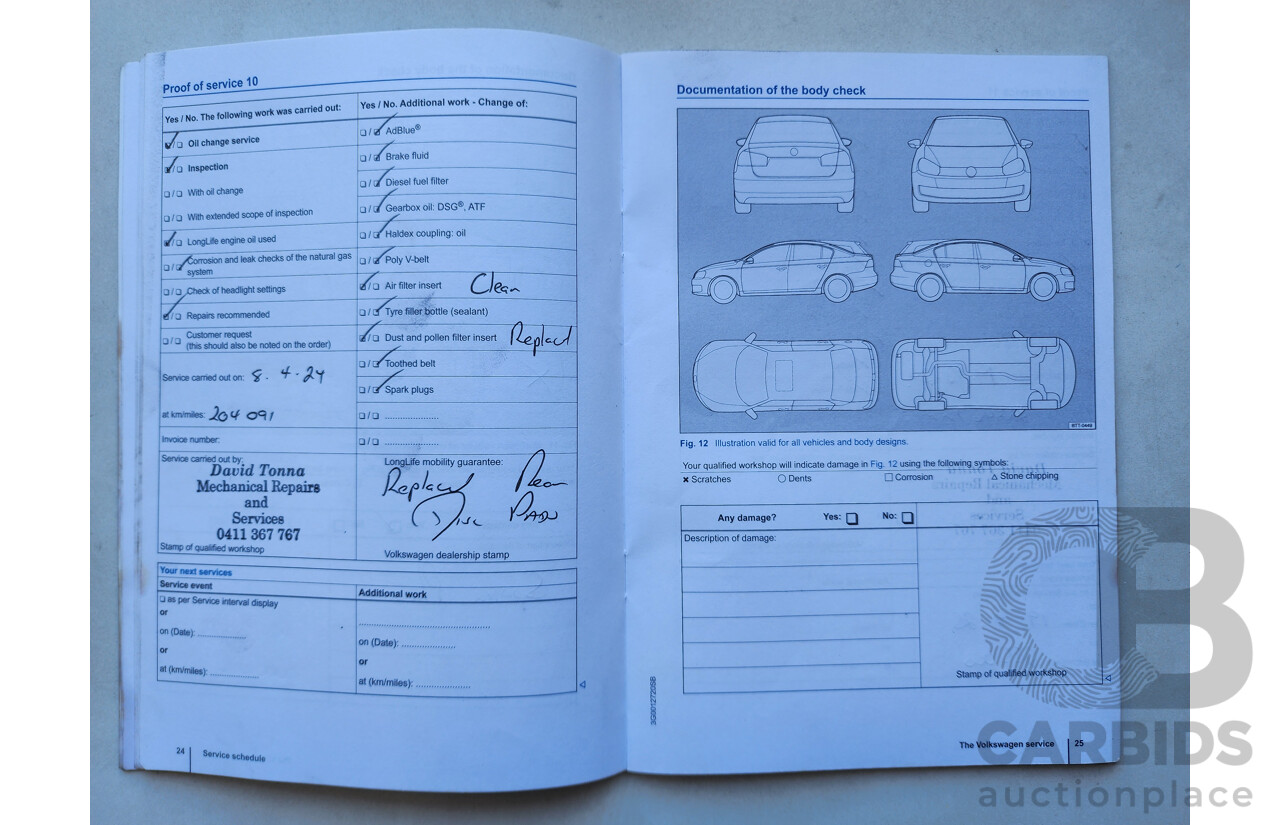 Proof of service 10
Yes / No. The following work was carried out:
Oil change service
Inspection
With oil change
With extended scope of inspection
LongLife engine oil used
Corrosion and leak checks of the natural gas
system
Check of headlight settings
Repairs recommended
Customer request
(this should also be noted on the order)
Service carried out on: 8. 4. 24
at km/miles: 204 091
Invoice number:
Service carried out by:
David Tonna
Mechanical Repairs
and
Services
0411 367 767
Stamp of qualified workshop
Yes / No. Additional work - Change of:
AdBlue®
Brake fluid
Diesel fuel filter
Gearbox oil: DSG®, ATF
Haldex coupling: oil
Poly V-belt
Air filter insert Clean
Tyre filler bottle (sealant)
Dust and pollen filter insert Replace
Toothed belt
Spark plugs
LongLife mobility guarantee:
Replace Rear
Disc Pads
Volkswagen dealership stamp
Your next services
Service event
as per Service interval display
or
on (Date):
or
at (km/miles):
Additional work
on (Date):
or
at (km/miles):
24 Service schedule
Documentation of the body check
Fig. 12 Illustration valid for all vehicles and body designs.
Your qualified workshop will indicate damage in Fig. 12 using the following symbols:
Scratches Dents Corrosion Stone chipping
Any damage? Yes: No:
Description of damage:
Stamp of qualified workshop
The Volkswagen service 25
CB
CARBIDS
auctionplace